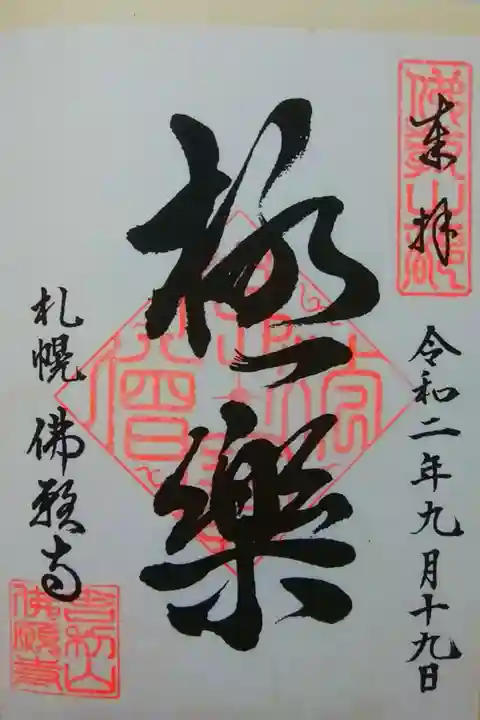 来拝
令和二年九月十九日
極樂
札幌 佛願寺
佛願寺